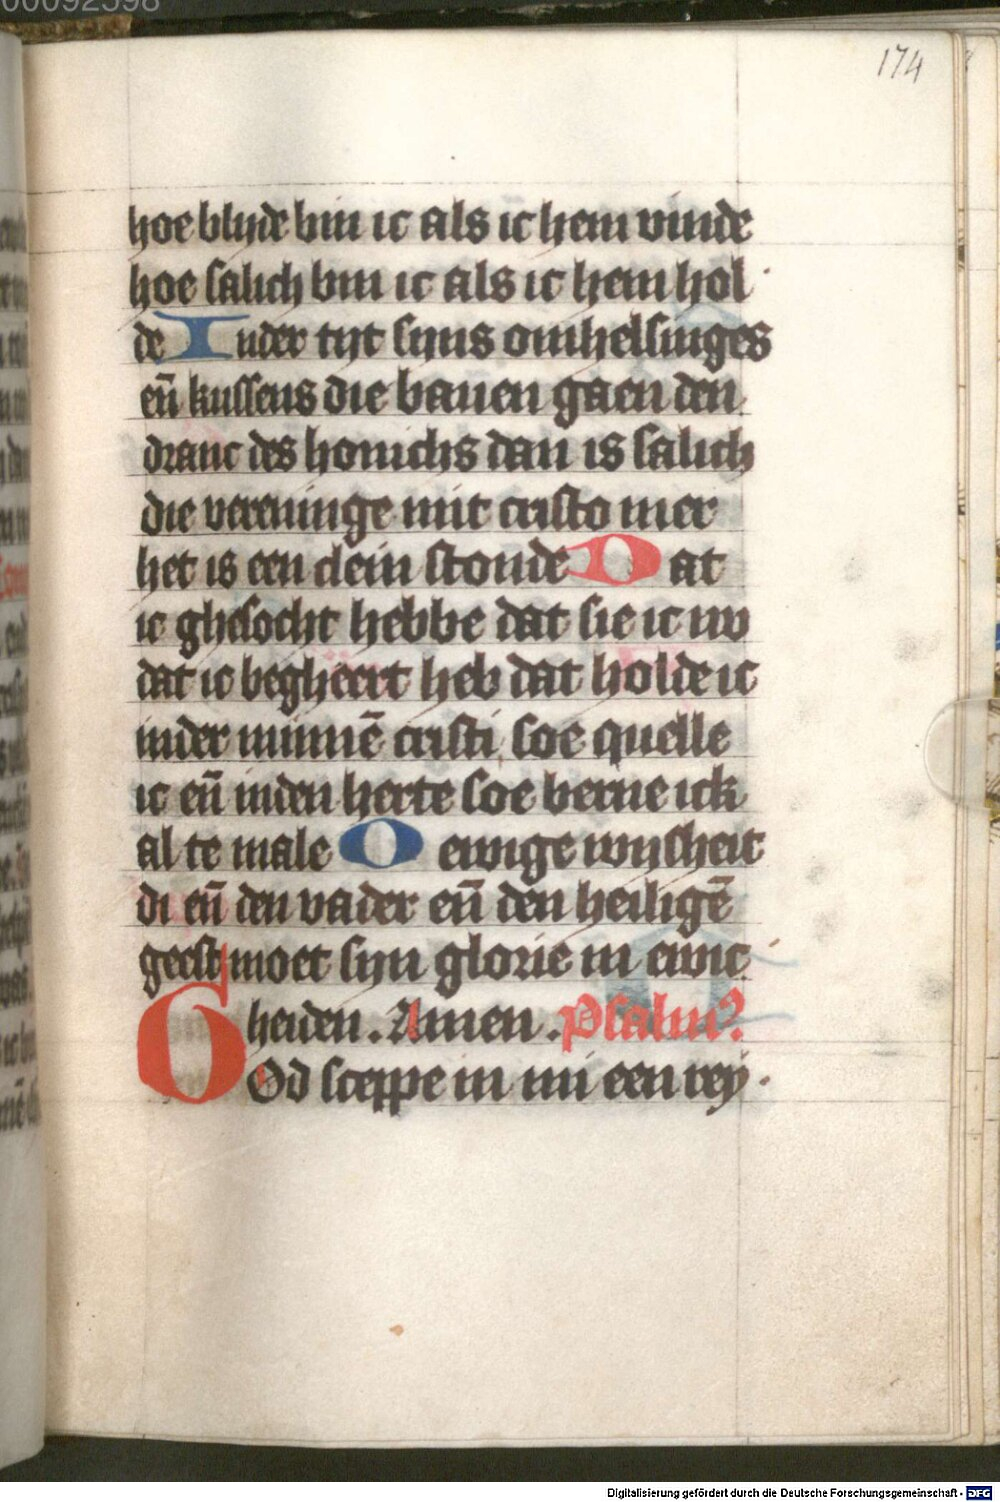 00092598
174
hoe blijde bin ic als ic hem vinde
hoe salich bin ic als ic hem hol
de Inder tijt sijns omhelsinges
eñ kussens die bauen gaen den
dranc des honichs dan is salich
die vereninge mit cristo mer
het is een clein stonde Dat
ic ghesocht hebbe dat sie ic nv
dat ic begheert heb dat holde ic
inder minnē cristi soe quelle
ic eñ inden herte soe berne ick
al te male O ewige wijsheit
di eñ den vader eñ den heiligē
geest moet sijn glorie in ewic
heiden. Amen. Psalm?
GOd sceppe in mi een rey
Digitalisierung gefördert durch die Deutsche Forschungsgemeinschaft - DFG